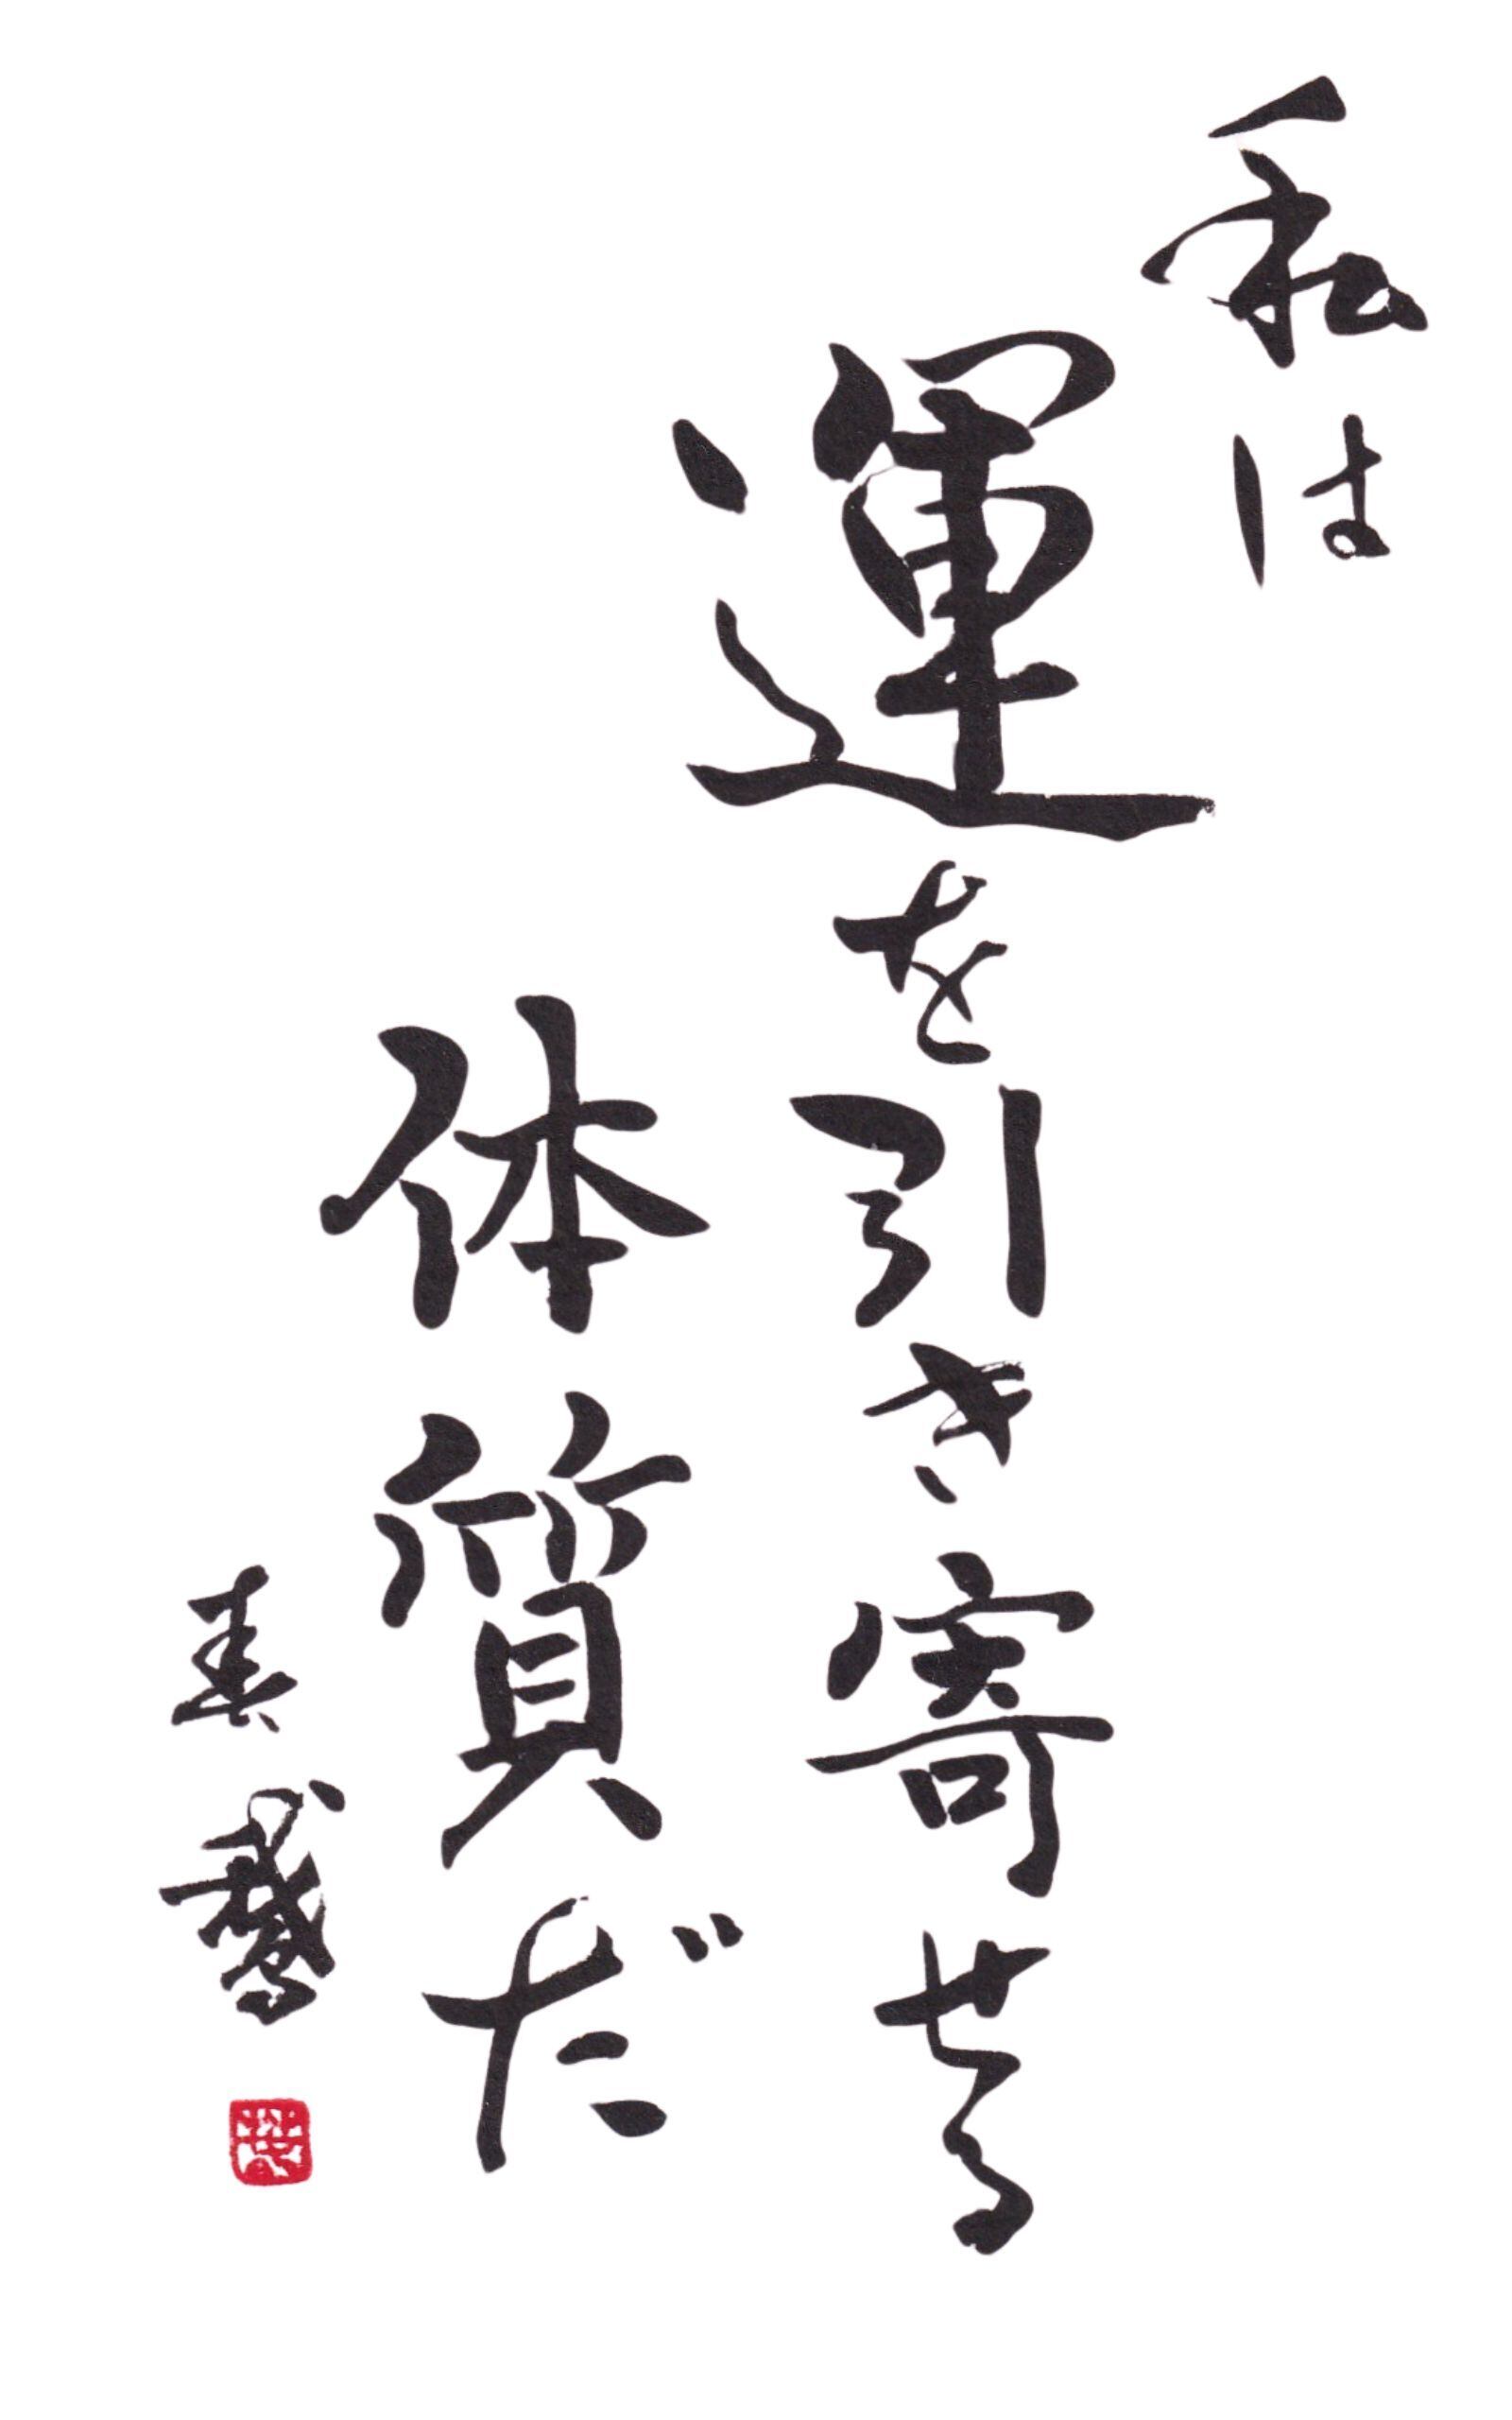 私は
運を引き寄せる
体質だ
春鵞